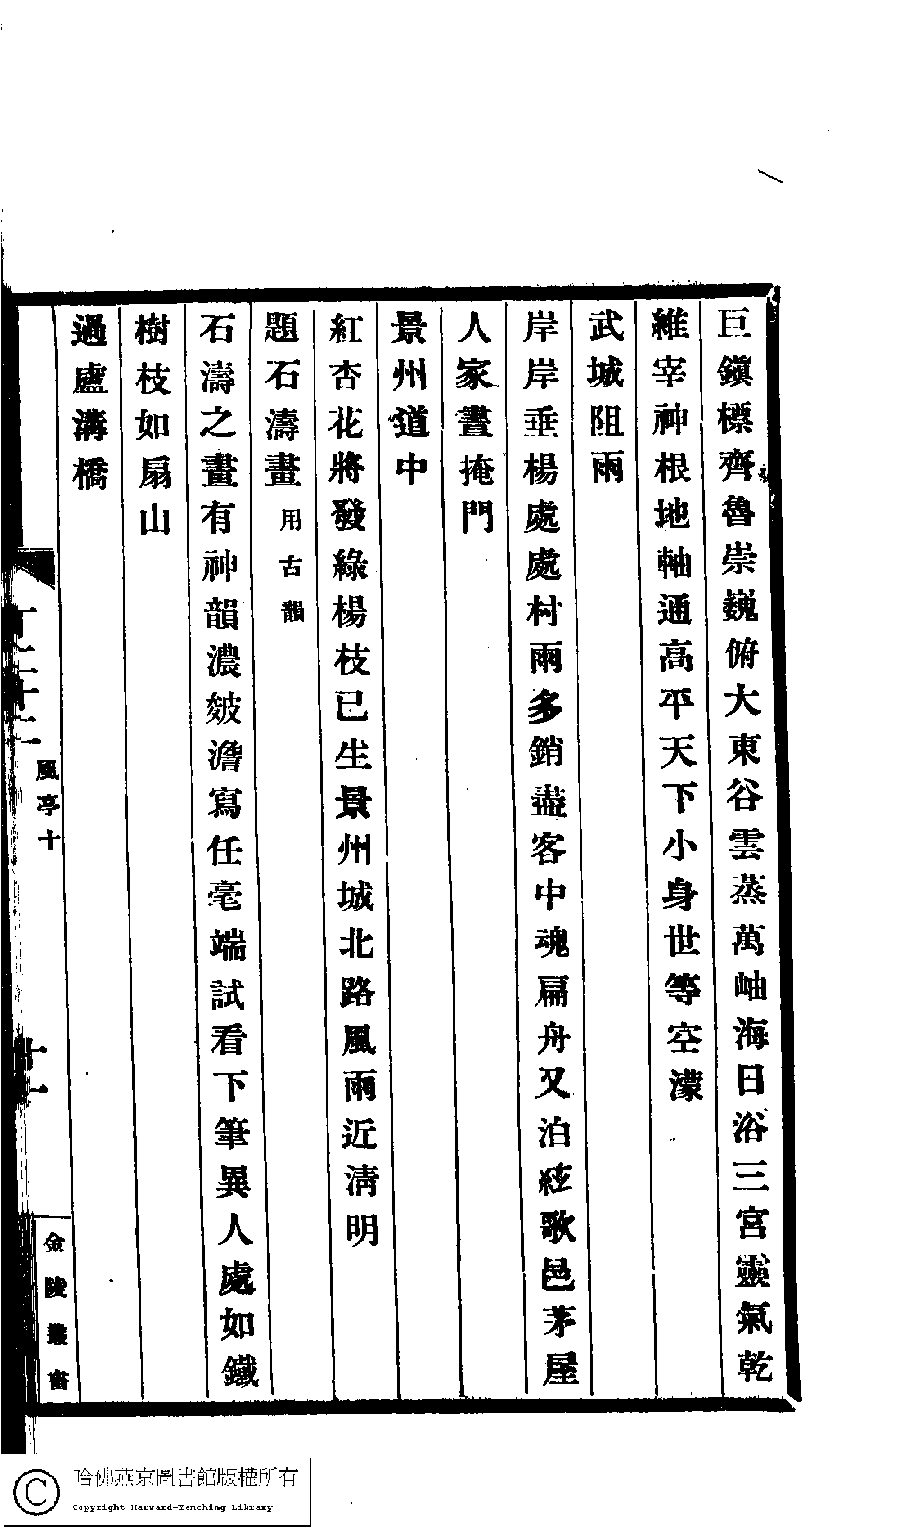 巨鎭標齊魯崇巍俯大東谷雲蒸萬岫海日浴三宮靈氣乾
維宰神根地軸通高平天下小身世等空濛
武城阻雨
岸岸垂楊處處村雨多銷盡客中魂扁舟又泊絃歌邑茅屋
人家晝掩門
景州道中
紅杏花將發綠楊枝已生景州城北路風雨近淸明
題石濤畫用古韻
石濤之畫有神韻濃皴澹寫任毫端試看下筆異人處如鐵
樹枝如扇山
過盧溝橋
風亭十
十一
金陵叢書
哈佛燕京圖書館版權所有
Copyright Harvard-Yenching Library